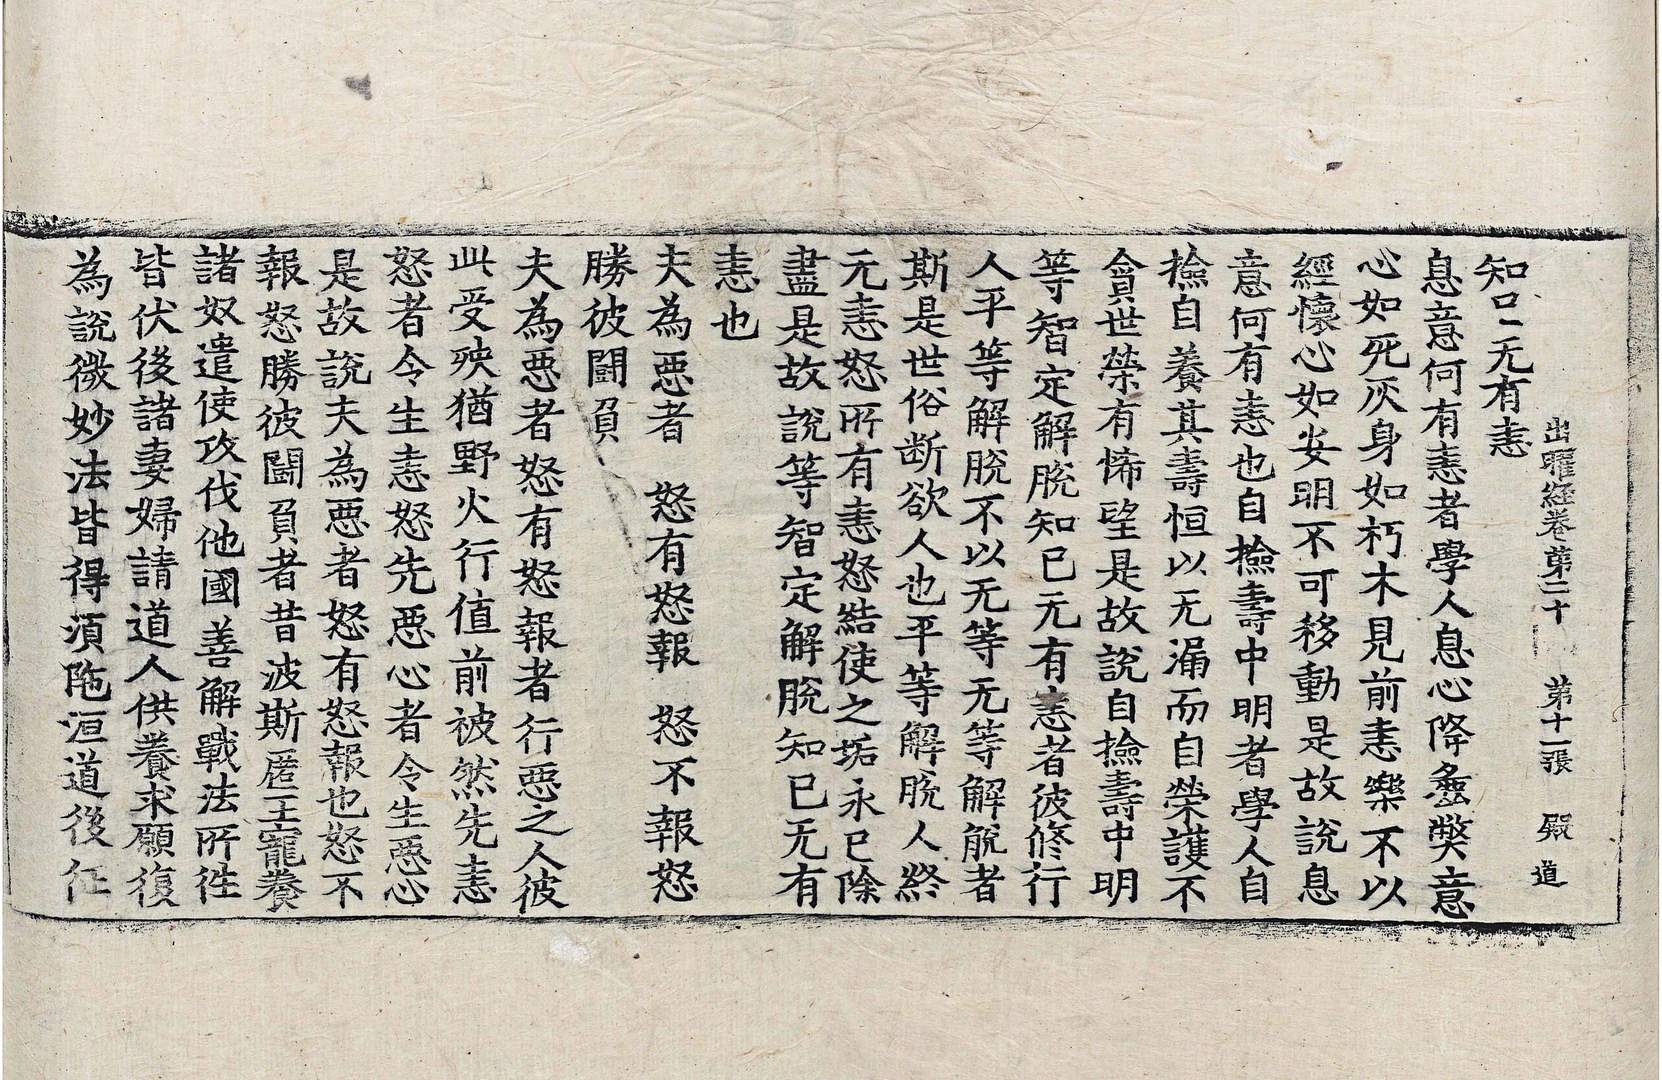 出曜経卷第二十　第十一張　殿　道
知已无有恚
息意何有恚者學人息心降蠱獘意
心如死灰身如朽木見前恚樂不以
經懷心如安明不可移動是故說息
意何有恚也自撿壽中明者學人自
撿自養其壽恒以无漏而自榮護不
貪世榮有悕望是故說自撿壽中明
等智定解脫知已无有恚者彼修行
人平等解脫不以无等无等解脫者
斯是世俗断欲人也平等解脫人終
无恚怒所有恚怒結使之垢永已除
盡是故說等智定解脫知已无有
恚也
夫為惡者　怒有怒報　怒不報怒
勝彼鬪負
夫為惡者怒有怒報者行惡之人彼
此受殃猶野火行值前被然先恚
怒者令生恚怒先惡心者令生惡心
是故說夫為惡者怒有怒報也怒不
報怒勝彼鬪負者昔波斯匿王寵養
諸奴遣使攻伐他國善解戰法所徃
皆伏後諸妻婦請道人供養求願復
為說微妙法皆得湏陁洹道後征